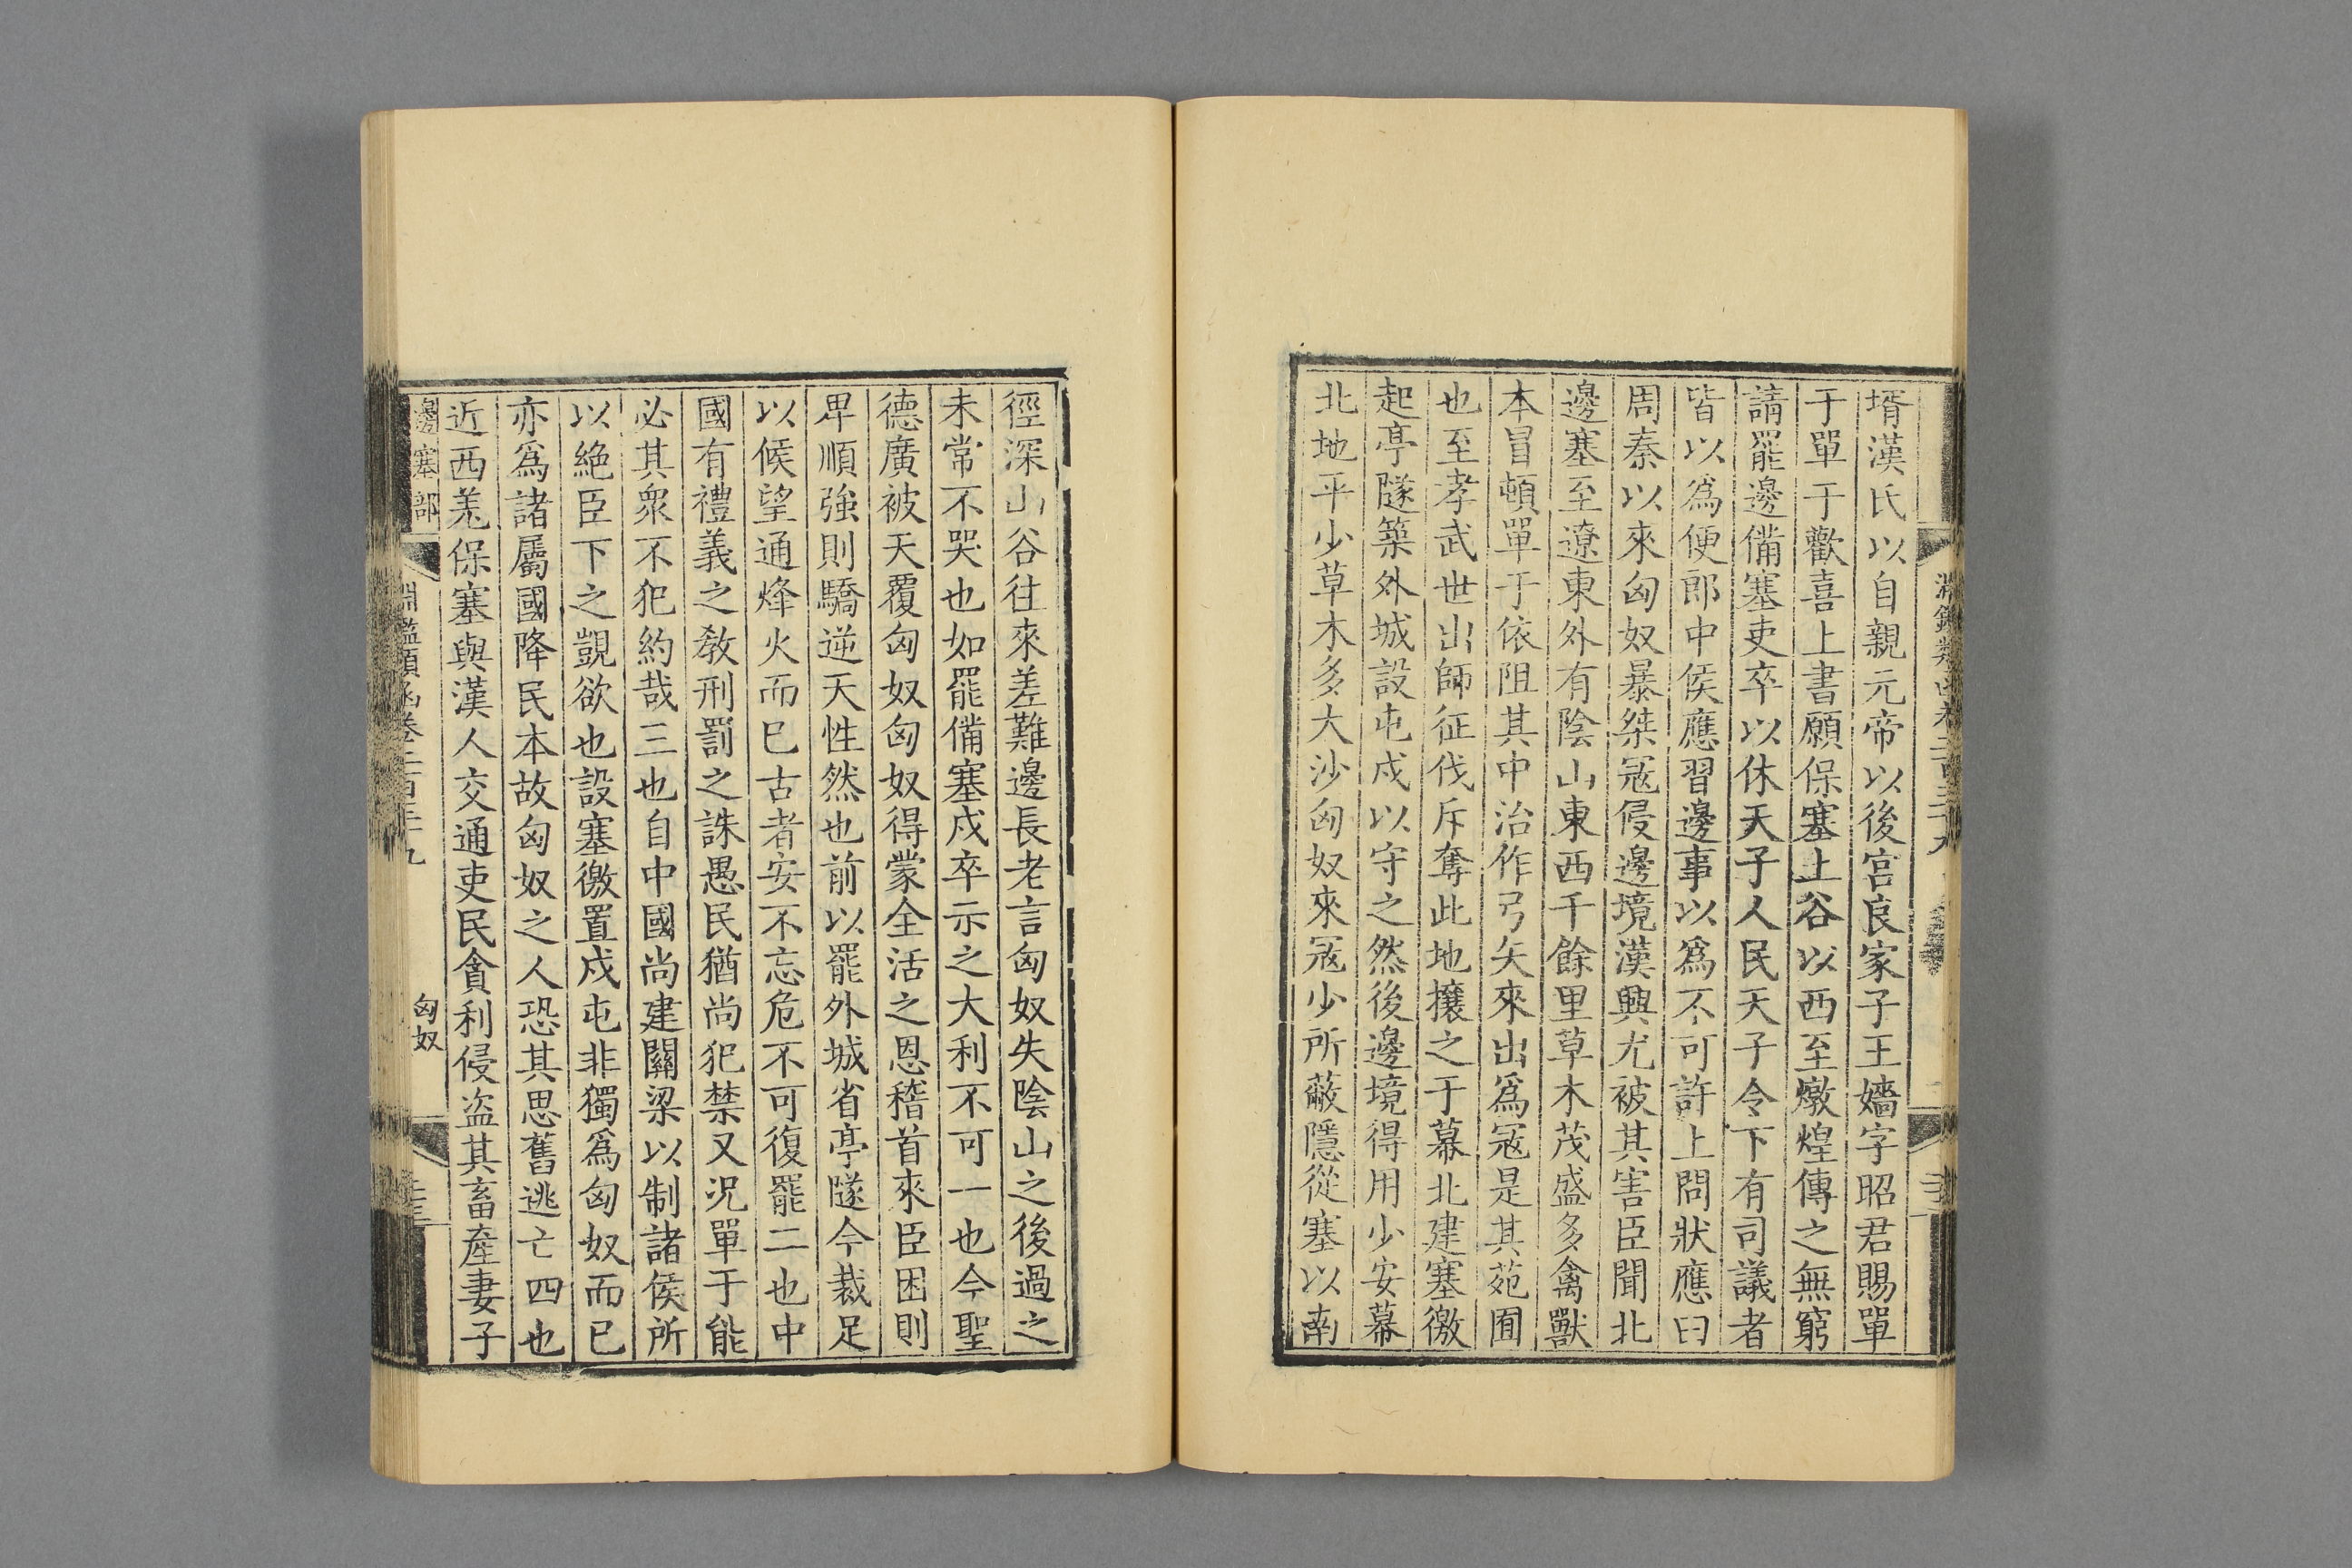 壻漢氏以自親元帝以後宮良家子王嬙字昭君賜單
于單于歡喜上書願保塞上谷以西至燉煌傳之無窮
請罷邊備塞吏卒以休天子人民天子令下有司議者
皆以爲便郎中侯應習邊事以爲不可許上問狀應曰
周秦以來匈奴暴桀寇侵邊境漢興尤被其害臣聞北
邊塞至遼東外有陰山東西千餘里草木茂盛多禽獸
本冒頓單于依阻其中治作弓矢來出爲寇是其苑囿
也至孝武世出師征伐斥奪此地攘之于幕北建塞徼
起亭隧築外城設屯戍以守之然後邊境得用少安幕
北地平少草木多大沙匈奴來寇少所蔽隱從塞以南
徑深山谷往來差難邊長老言匈奴失陰山之後過之
未常不哭也如罷備塞戍卒示之大利不可一也今聖
德廣被天覆匈奴匈奴得蒙全活之恩稽首來臣困則
卑順強則驕逆天性然也前以罷外城省亭隧今裁足
以候望通烽火而已古者安不忘危不可復罷二也中
國有禮義之教刑罰之誅愚民猶尚犯禁又況單于能
必其衆不犯約哉三也自中國尚建關梁以制諸侯所
以絕臣下之覬欲也設塞徼置戍屯非獨爲匈奴而已
亦爲諸屬國降民本故匈奴之人恐其思舊逃亡四也
近西羌保塞與漢人交通吏民貪利侵盜其畜產妻子
邊塞部
淵鑑類函卷二百三十九
匈奴